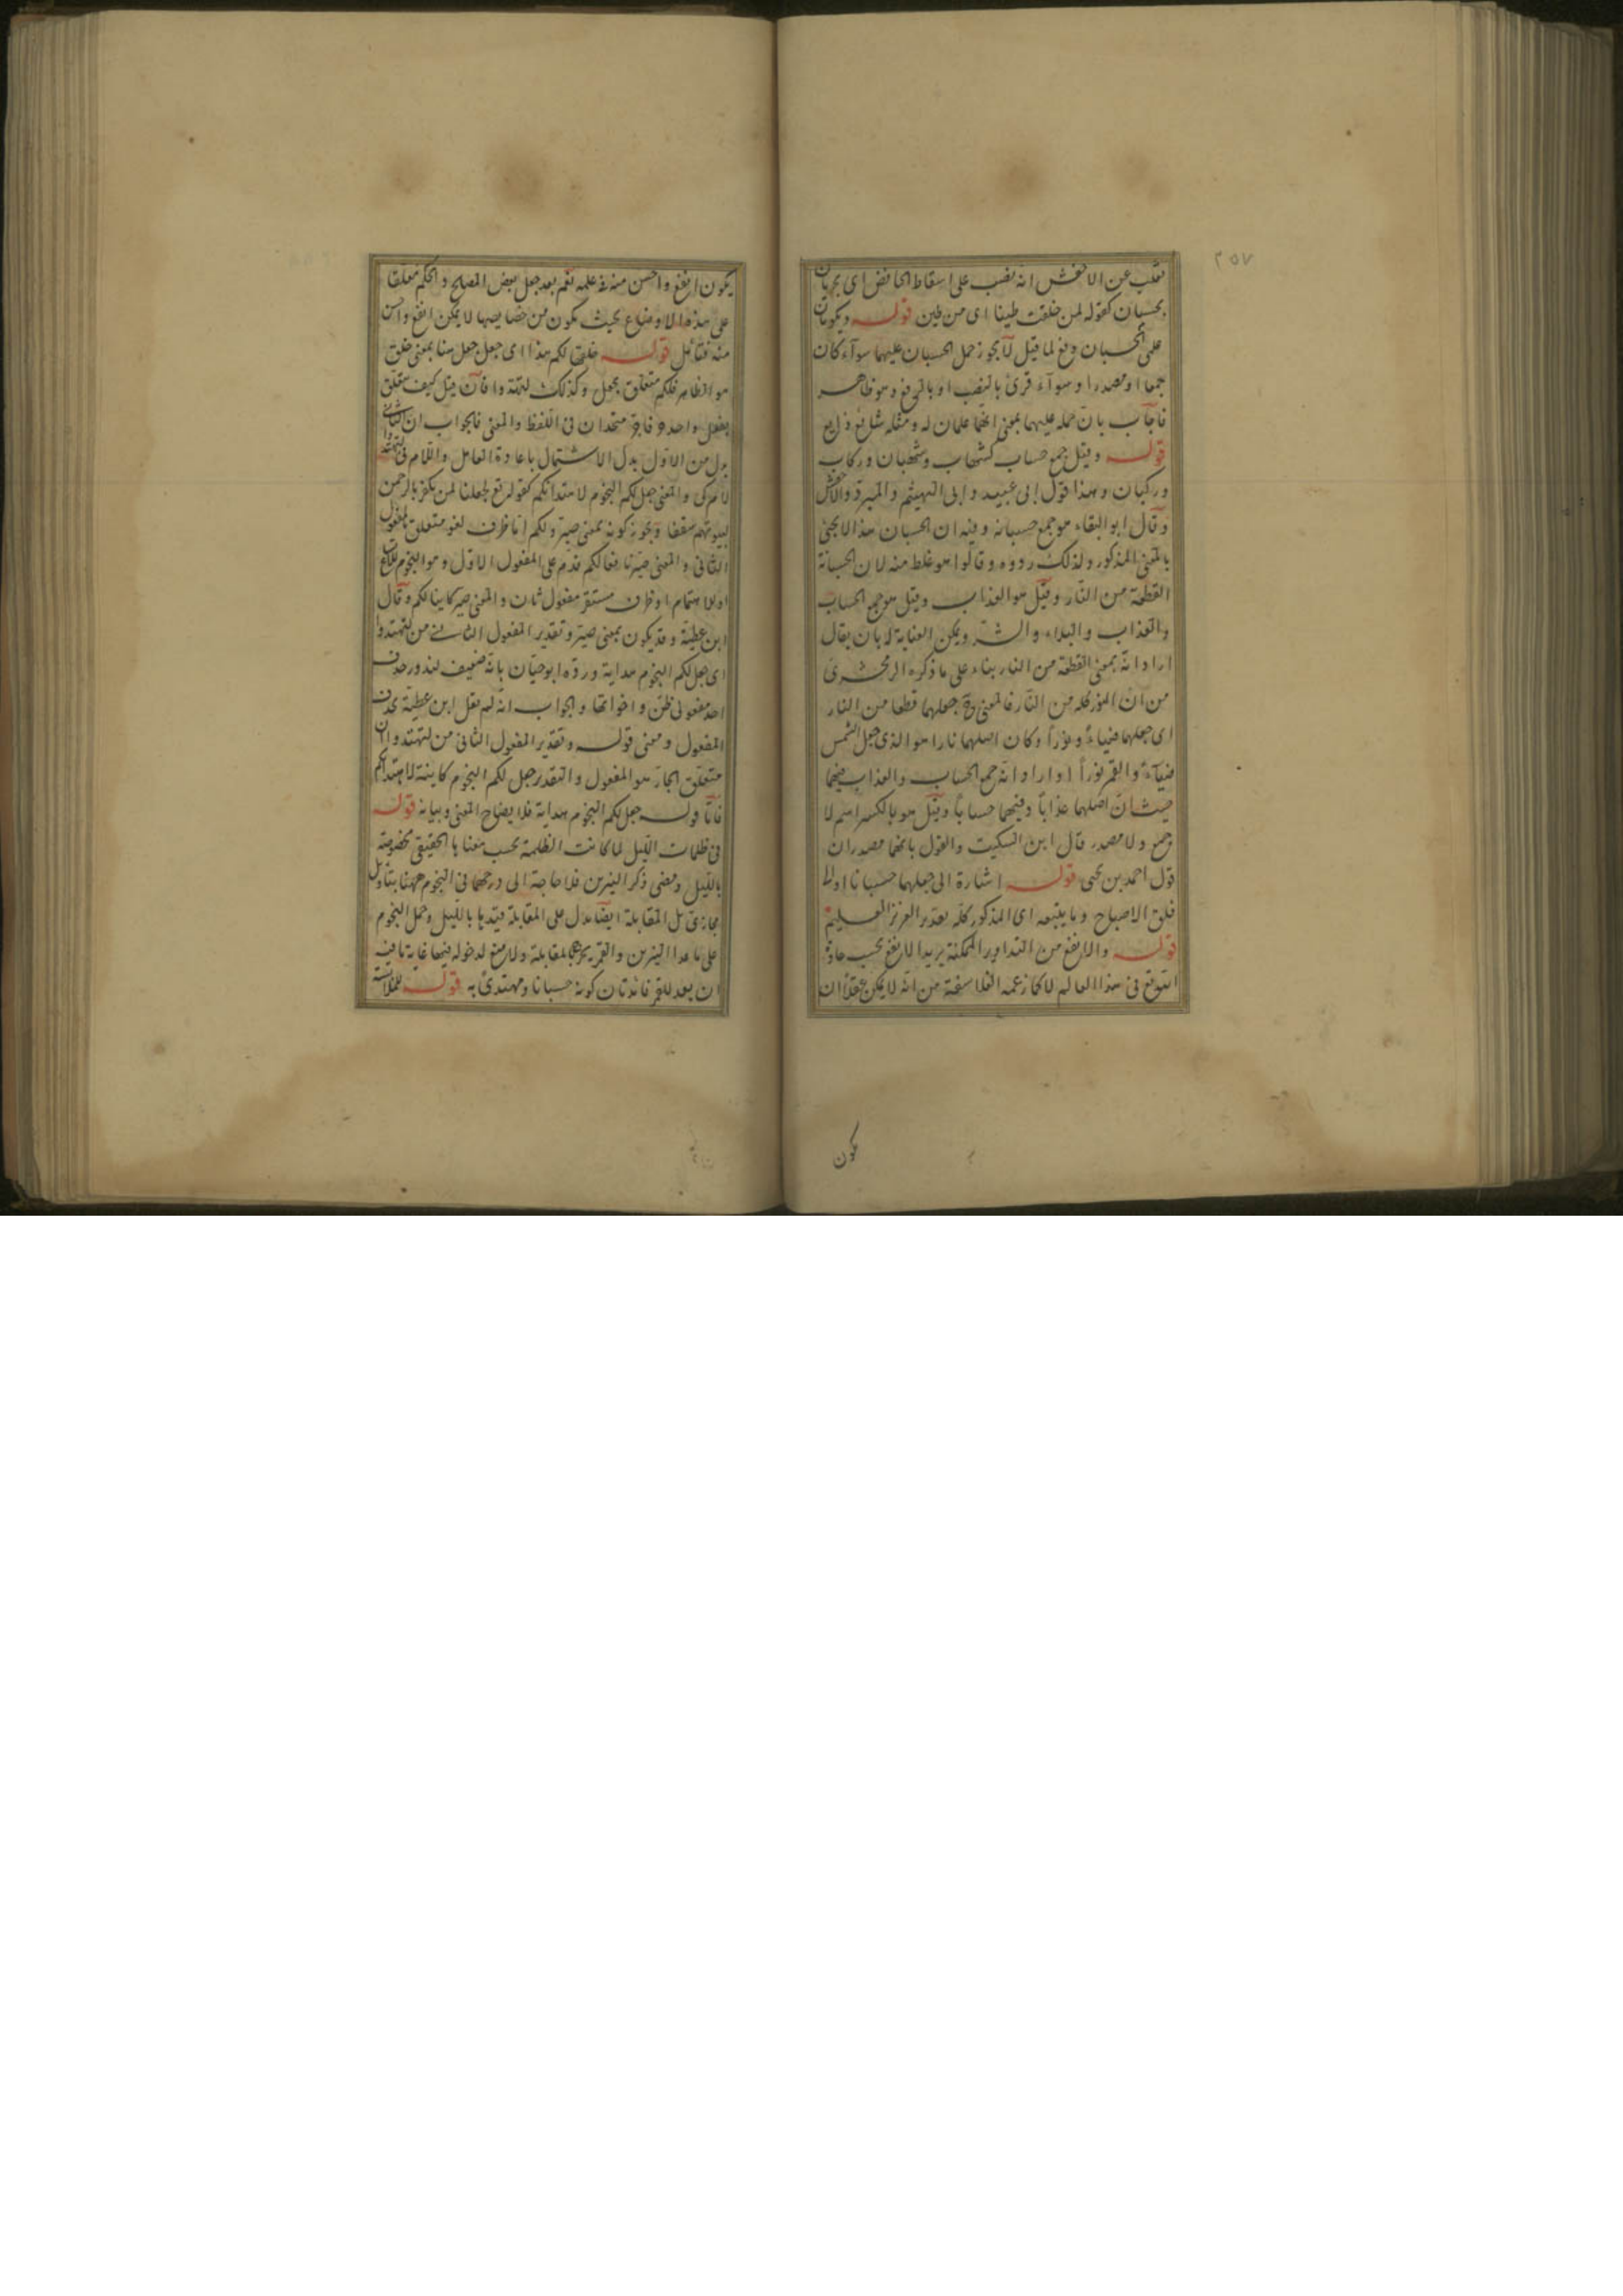 ٢٥٧
ثعلب عن الاخفش انه نصب على اسقاط الخافض اى يجريان
بحسبان كقوله لمن خلقت طينا اى من طين قوله ويكونان
علمى الحسبان دفع لما قيل لا يجوز حمل الحسبان عليهما سوآء كان
جمعا او مصدرا وسوآء قرئ بالنصب او بالرفع وهو ظاهر
فاجاب بان حمله عليهما بمعنى انهما علمان له ومثله شائع ذايع
قوله وقيل جمع حساب كشهاب وشهبان وركاب
وركبان وهذا قول ابى عبيد وابى الهيثم والمبرد والاخفش
وقال ابو البقاء هو جمع حسبانه وفيه ان الحسبان هذا لا يجئ
بالمعنى المذكور ولذلك ردوه وقالوا هو غلط منه لان الحسبانة
القطعة من النار وقيل هو العذاب وقيل هو جمع الحساب
والعذاب والبلاء والشر ويمكن العناية له بان يقال
اراد انه بمعنى القطعة من النار بناء على ما ذكره الزمخشرى
من ان النور كله من النار فالمعنى ح جعلهما قطعا من النار
اى جعلهما ضياء ونورا وكان اصلهما نارا هو الذى جعل الشمس
ضيآء والقمر نورا او اراد انه جمع الحساب والعذاب فيهما
حيث ان اصلهما عذابا وفيهما حسابا وقيل هو بالكسر اسم لا
جمع ولا مصدر قال ابن السكيت والقول بانهما مصدران
قول احمد بن يحيى قوله اشارة الى جعلهما حسبانا او الى
فلق الاصباح وما يتبعه اى المذكور كله تقدير العزيز العليم
قوله والانفع من التداوير الممكنة يريد الانفع بحسب عادة
التوقع فى هذا العالم لا كما زعمه الفلاسفة من انه لا يمكن عقلا ان
يكون
يكون انفع واحسن منه فى علمه نعم بعد جعل بعض المصالح والحكم معلقا
على هذه الاوضاع بحيث يكون من خصايصها لا يمكن انفع واحسن
منه فتأمل قوله خلقها لكم هذا اى جعل جعل هنا بمعنى خلق
هو الظاهر فلكم متعلق بجعل وكذلك لتهتدوا فان قيل كيف تعلق
بفعل واحد متحدان فى اللفظ والمعنى فالجواب ان الثانى
بدل من الاول بدل الاشتمال باعادة العامل واللام فى لتهتدوا
لام كى والمعنى جعل لكم النجوم لاهتدائكم كقوله تع لجعلنا لمن يكفر بالرحمن
لبيوتهم سقفا ويجوز كونه بمعنى صير ولكم اما ظرف لغو متعلق بالمفعول
الثانى والمعنى صيرنا لكم قدم على المفعول الاول وهو النجوم
او للاهتمام او ظرف مستقر مفعول ثان والمعنى صير كاينا لكم وقال
ابن عطية وقد يكون بمعنى صير وتقدير المفعول الثانى من لتهتدوا
اى جعل لكم النجوم هداية ورده ابو حيان بانه ضعيف لندور حذف
احد مفعولى ظن واخواتها والجواب انه لم يقل ابن عطية بحذف
المفعول ومعنى قوله وتقدير المفعول الثانى من لتهتدوا ان
متعلق الجار هو المفعول والتقدير جعل لكم النجوم كاينة لاهتدائكم
فاما قوله جعل لكم النجوم هداية فلايضاح المعنى وبيانه قوله
فى ظلمات الليل لما كانت الظلمة بحسب معناها الحقيقى مخصوصة
بالليل ومضى ذكر النيرين فلا حاجة الى درجهما فى النجوم ههنا بتأويل
مجازى بل المقابلة ايضا تدل على المقابلة قيدها بالليل وحمل النجوم
على ما عدا النيرين والقمر للمقابلة ولا منع لدخوله فيها غاية ما فيه
ان يعد للقمر فائدتان كونه حسبانا ومهتدى به قوله للملابسة